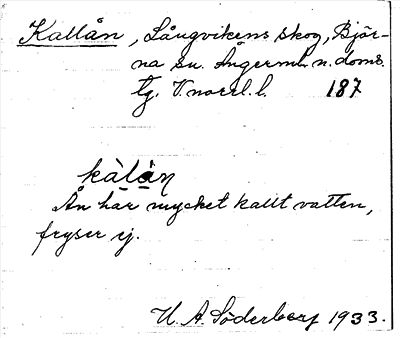 Kallån, Långvikens skog, Bjür-
na sn. Ångerml. n. doms.
tg. V.norrl. l. 187
kàlán
Ån har mycket kallt vatten,
fryser ej.
H. A. Söderberg 1933.